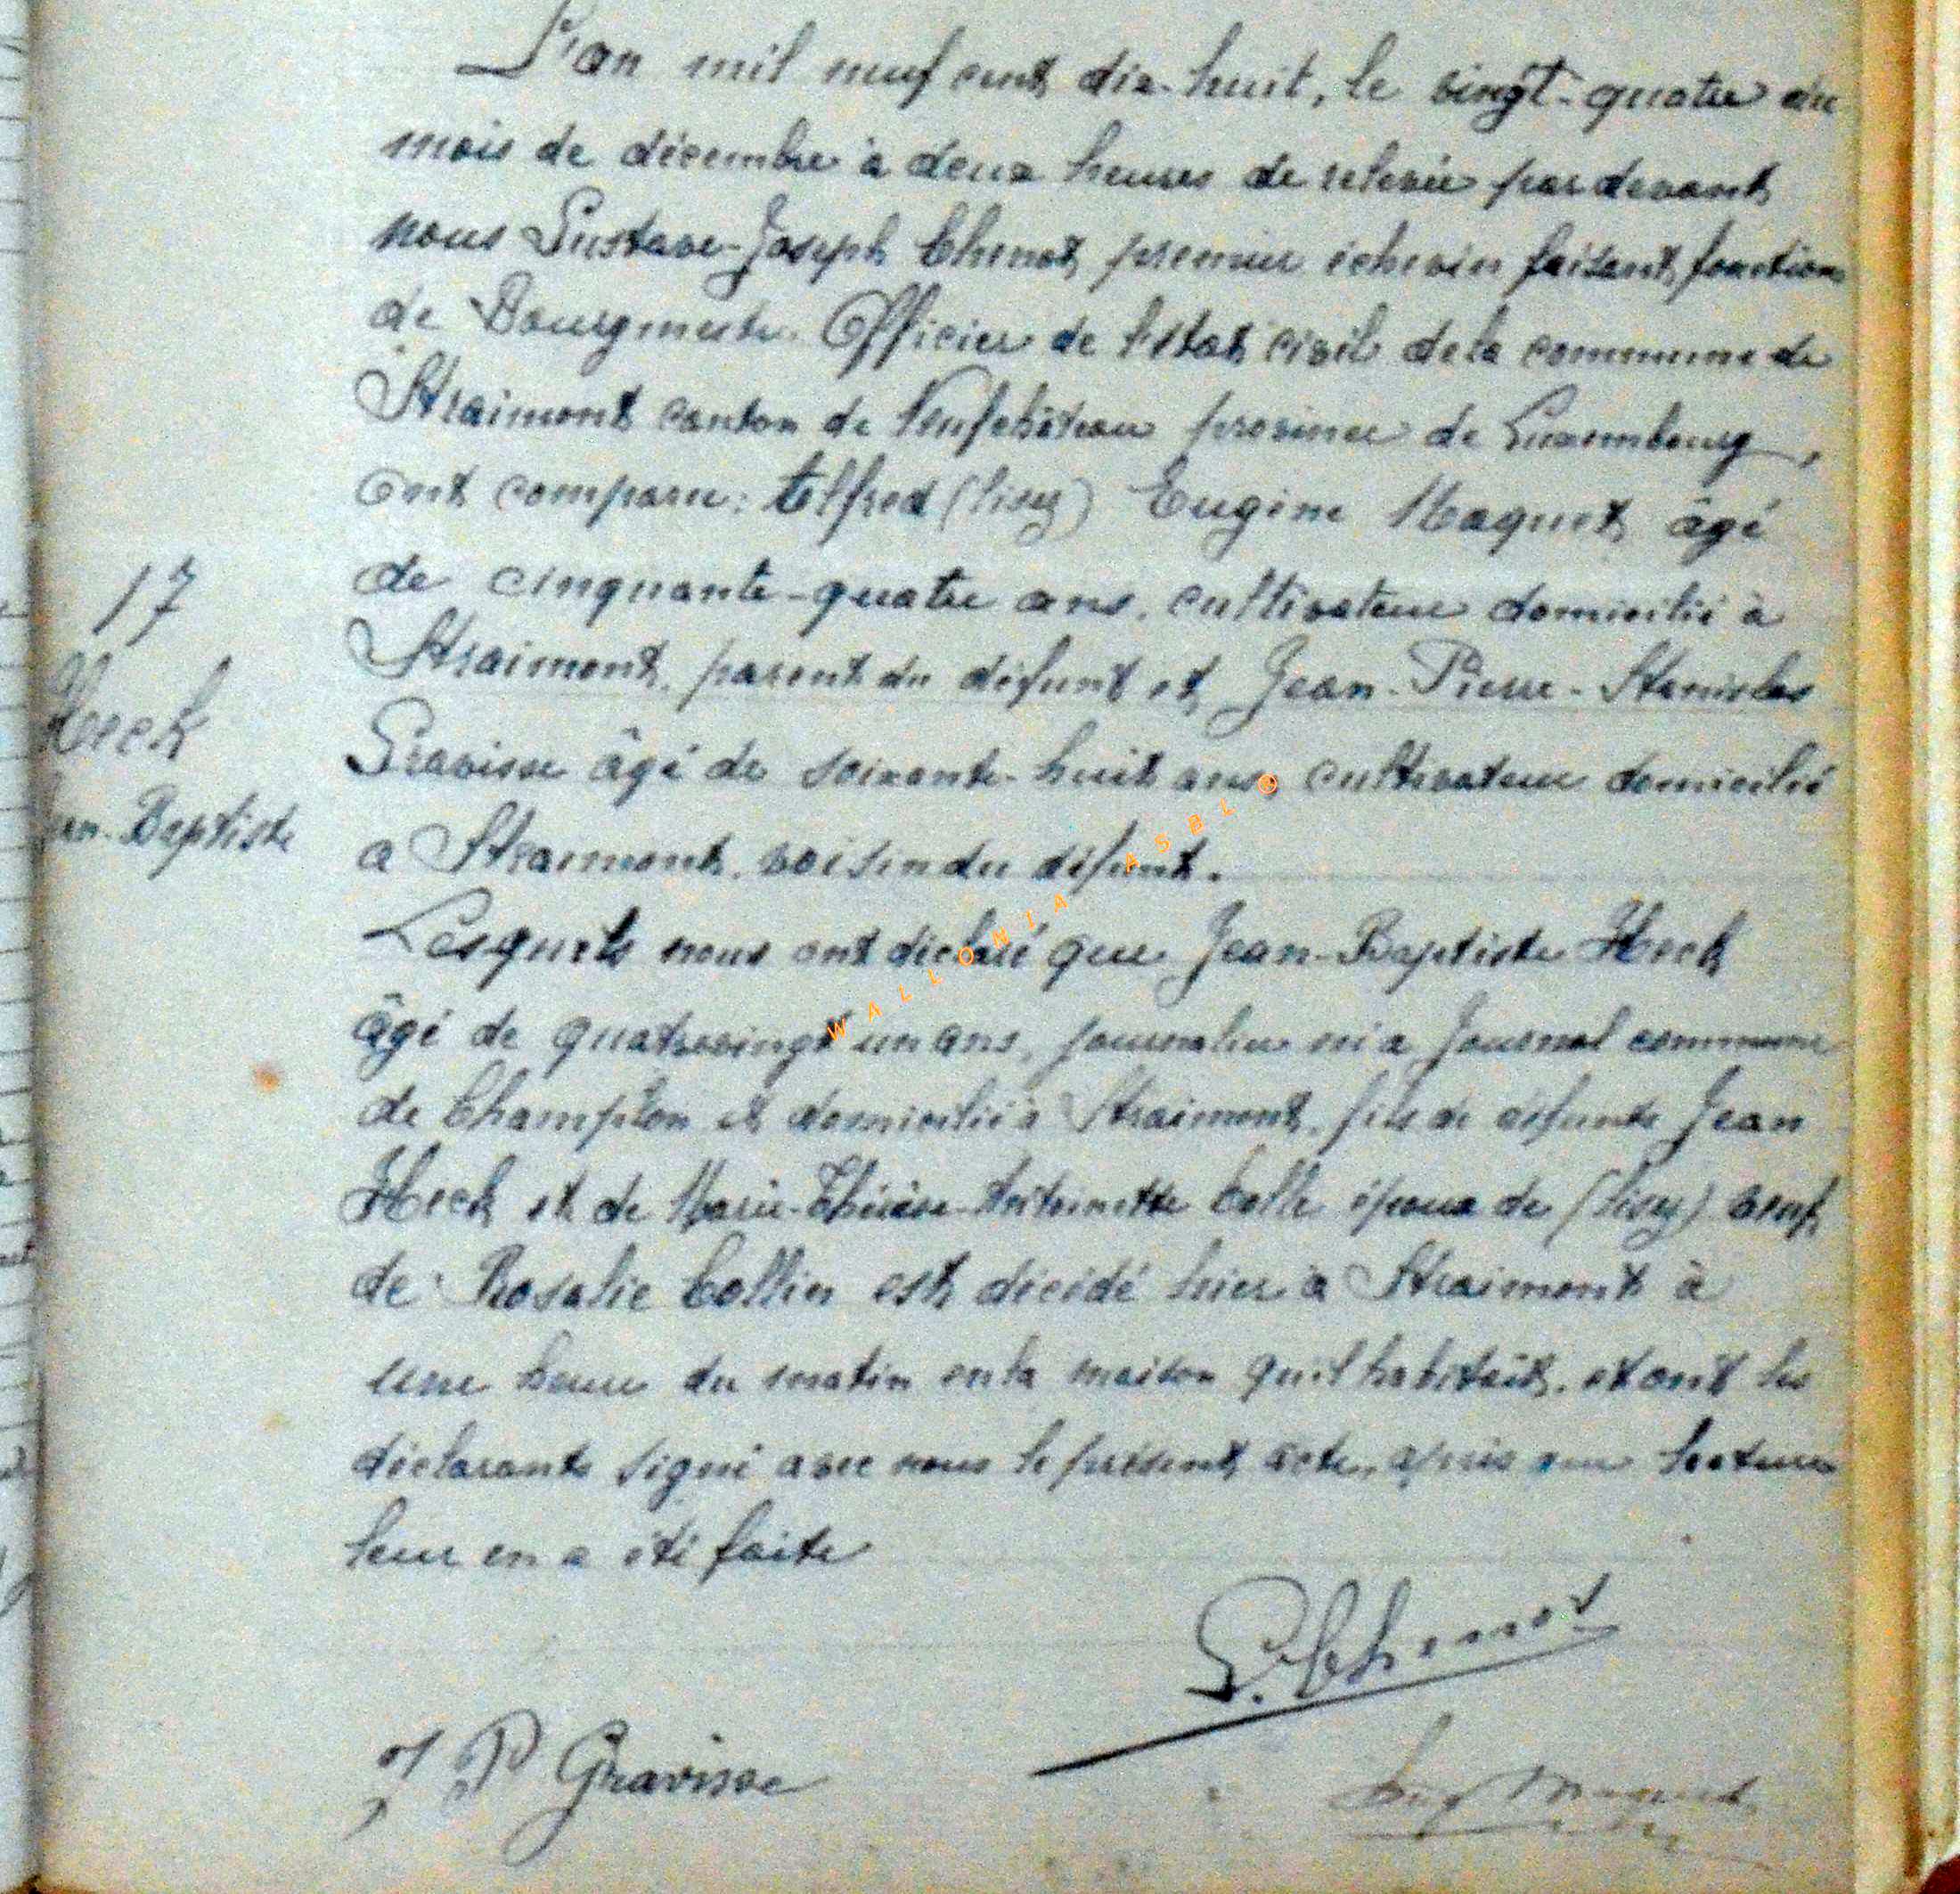 L'an mil neuf cent dix-huit, le vingt-quatre du
mois de décembre à deux heures de relevée par devant
nous Gustave-Joseph Chenot, premier échevin faisant fonction
de Bourgmestre. Officier de l'état civil de la commune de
Straimont canton de Neufchâteau province de Luxembourg,
ont comparu: Alfred (lisez) Eugène Maquet, âgé
de cinquante-quatre ans, cultivateur domicilié à
17
Straimont, parent du défunt et, Jean-Pierre-Stanislas
Heck
Gravisse âgé de soixante-huit ans, cultivateur domicilié
Jean-Baptiste
a Straimont, voisin du défunt.
Lesquels nous ont déclaré que Jean-Baptiste Heck
âgé de quatrevingt un ans, journalier né a Journal commune
de Champlon et domicilié à Straimont, fils de défunts Jean
Heck et de Marie-Thérèse-Antoinette Colle époux de (lisez) veuf
de Rosalie Collin est décédé hier à Straimont à
une heure du matin en la maison qu'il habitait, et ont les
déclarants signé avec nous le présent acte, après que lecture
leur en a été faite
G. Chenot
J P Gravisse
Eug Maquet
WALLONIA ASBL ©